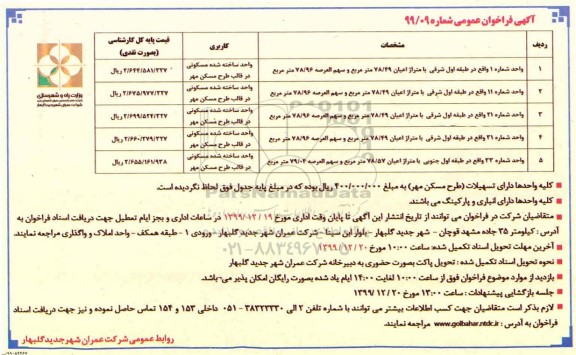 آگهی فراخوان عمومی شماره ۹۹/۰۹
وزارت راه و شهرسازی
ردیف مشخصات کاربری قیمت پایه کل کارشناسی (بصورت نقدی)
۱ واحد شماره ۱ واقع در طبقه اول شرقی با متراژ اعیان ۷۸/۴۹ متر مربع و سهم العرصه ۷۸/۹۶ متر مربع واحد ساخته شده مسکونی در قالب طرح مسکن مهر ۲/۶۴۴/۵۸۱/۳۲۷ ریال
۲ واحد شماره ۱ واقع در طبقه اول شرقی با متراژ اعیان ۷۸/۴۹ متر مربع و سهم العرصه ۷۸/۹۶ متر مربع واحد ساخته شده مسکونی در قالب طرح مسکن مهر ۲/۶۷۵/۹۷۷/۳۲۷ ریال
۳ واحد شماره ۲۱ واقع در طبقه اول شرقی با متراژ اعیان ۷۸/۴۹ متر مربع و سهم العرصه ۷۸/۹۶ متر مربع واحد ساخته شده مسکونی در قالب طرح مسکن مهر ۲/۶۹۹/۵۲۴/۳۲۷ ریال
۴ واحد شماره ۳۱ واقع در طبقه اول شرقی با متراژ اعیان ۷۸/۴۹ متر مربع و سهم العرصه ۷۸/۹۶ متر مربع واحد ساخته شده مسکونی در قالب طرح مسکن مهر ۲/۶۶۰/۲۷۹/۳۲۷ ریال
۵ واحد شماره ۲۳ واقع در طبقه اول جنوبی با متراژ اعیان ۷۸/۵۷ متر مربع و سهم العرصه ۷۹/۰۴ متر مربع واحد ساخته شده مسکونی در قالب طرح مسکن مهر ۲/۶۵۵/۱۶۱/۹۳۸ ریال
کلیه واحدها دارای تسهیلات (طرح مسکن مهر) به مبلغ ۴۰۰/۰۰۰/۰۰۰ ریال بوده که در مبلغ پایه جدول فوق لحاظ نگردیده است.
کلیه واحدها دارای انباری و پارکینگ می باشند.
متقاضیان شرکت در فراخوان می توانند از تاریخ انتشار این آگهی تا پایان وقت اداری مورخ ۱۳۹۹/۱۲/۱۹ در ساعات اداری و بجز ایام تعطیل جهت دریافت اسناد فراخوان به
آدرس: کیلومتر ۳۵ جاده مشهد قوچان - شهر جدید گلبهار - بلوار ابن سینا - شرکت عمران شهر جدید گلبهار - ورودی ۱ - طبقه همکف - واحد املاک و واگذاری مراجعه نمایند.
آخرین مهلت تحویل اسناد تکمیل شده: ساعت ۱۰:۰۰ مورخ ۱۳۹۹/۱۲/۲۰
نحوه تحویل اسناد تکمیل شده: تحویل پاکت بصورت حضوری به دبیرخانه شرکت عمران شهر جدید گلبهار
بازدید از موارد موضوع فراخوان فوق از ساعت ۱۰:۰۰ لغایت ۱۴:۰۰ ایام یاد شده بصورت رایگان امکان پذیر می باشد.
جلسه بازگشایی پیشنهادات: ساعت ۱۳:۰۰ مورخ ۱۳۹۹/۱۲/۲۰
لازم بذکر است متقاضیان جهت کسب اطلاعات بیشتر می توانند با شماره تلفن ۲ الی ۳۸۳۲۳۳۳۰ - ۰۵۱ داخلی ۱۵۳ و ۱۵۴ تماس حاصل نموده و نیز جهت دریافت اسناد
فراخوان به آدرس: www.golbahar.ntdc.ir مراجعه نمایند.
روابط عمومی شرکت عمران شهر جدید گلبهار
ParsNamadData
۰۲۱-۸۸۳۴۹۶۷۰